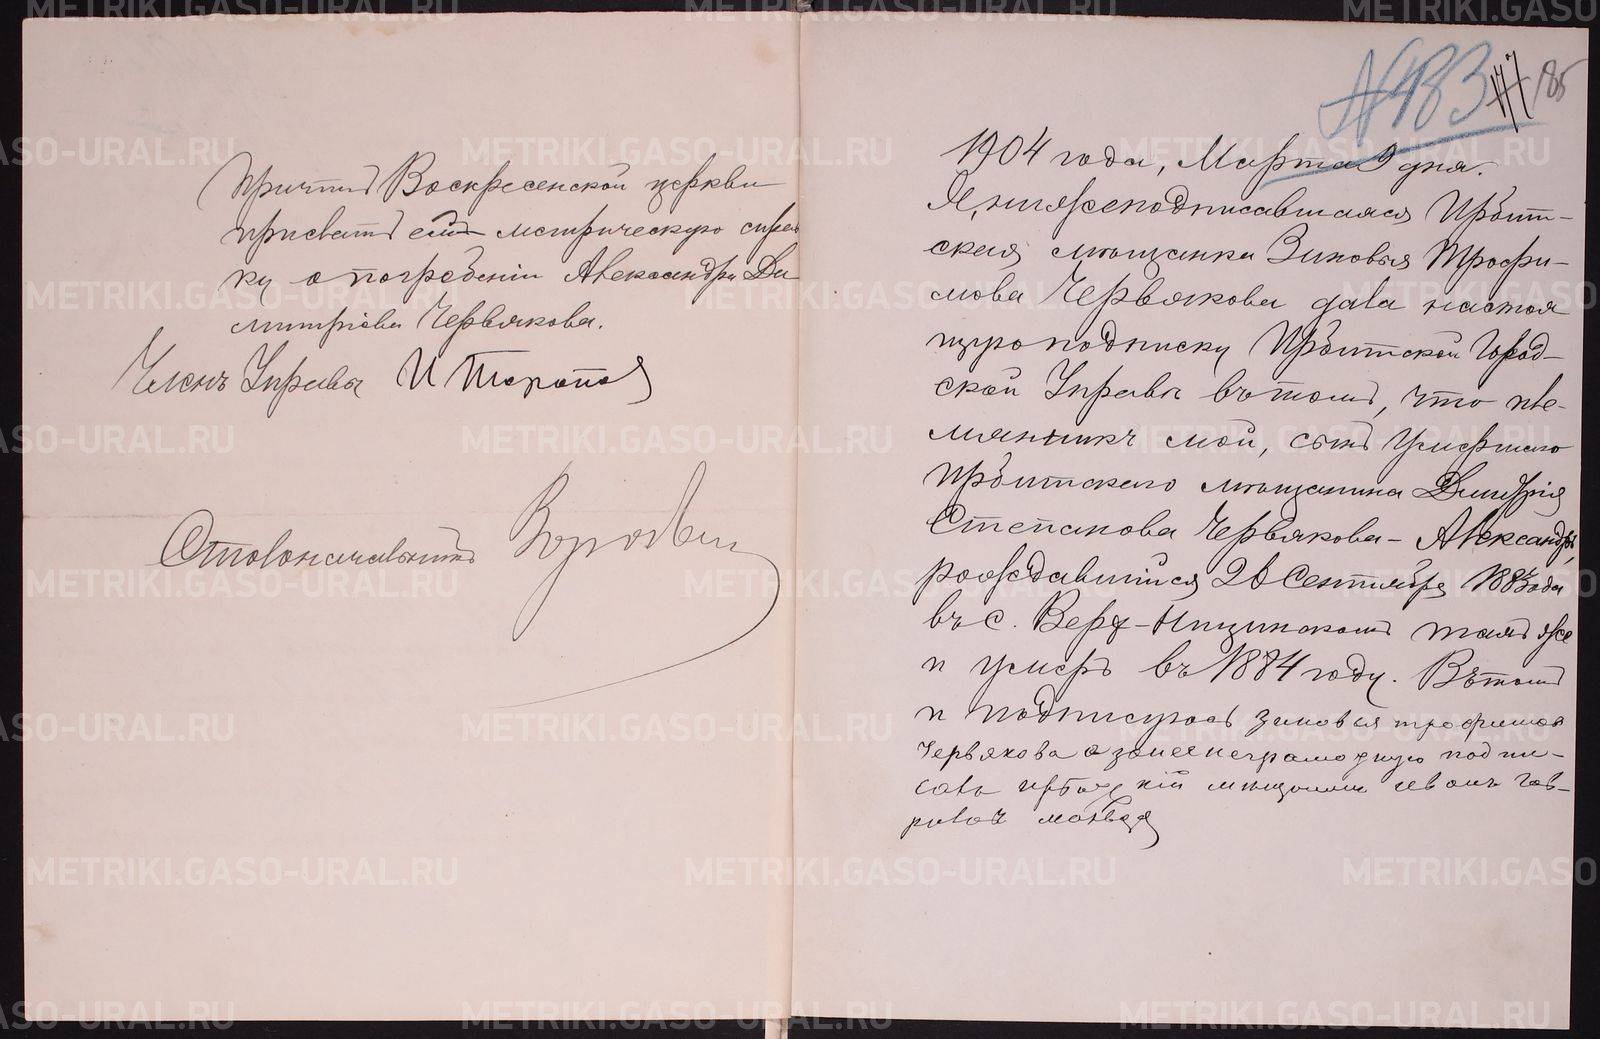 Причтъ Воскресенской церкви
присвать метрическую справ
ку о погребеніи Александра Ди
митріева Червякова.
Членъ Управы И Торопов
Столоначальникъ
№ 483 185
1904 года, Марта 9 дня.
Я, нижеподписавшаяся Ирбит-
ская мѣщанка Зиновья Трофи-
мова Червякова дала настоя
щую подписку Ирбитской Город-
ской Управы въ томъ, что пле-
мянникъ мой, сынъ умершаго
Ирбитскаго мѣщанина Димитрія
Степанова Червякова - Александръ,
рождавшійся 26 Сентября 1883 года
въ с. Верх-Ницинскомъ тамъ же
и умеръ въ 1884 году. Въ томъ
и подписуюсь Зиновья трофимов
Червякова а за нея неграмодную подпи-
салъ ирбицкій мещанинъ гав-
риловъ
METRIKI.GASO-URAL.RU